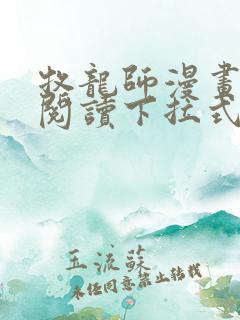 牧龍師漫畫
閱讀下拉式
玉流蘇
未經同意禁止轉載